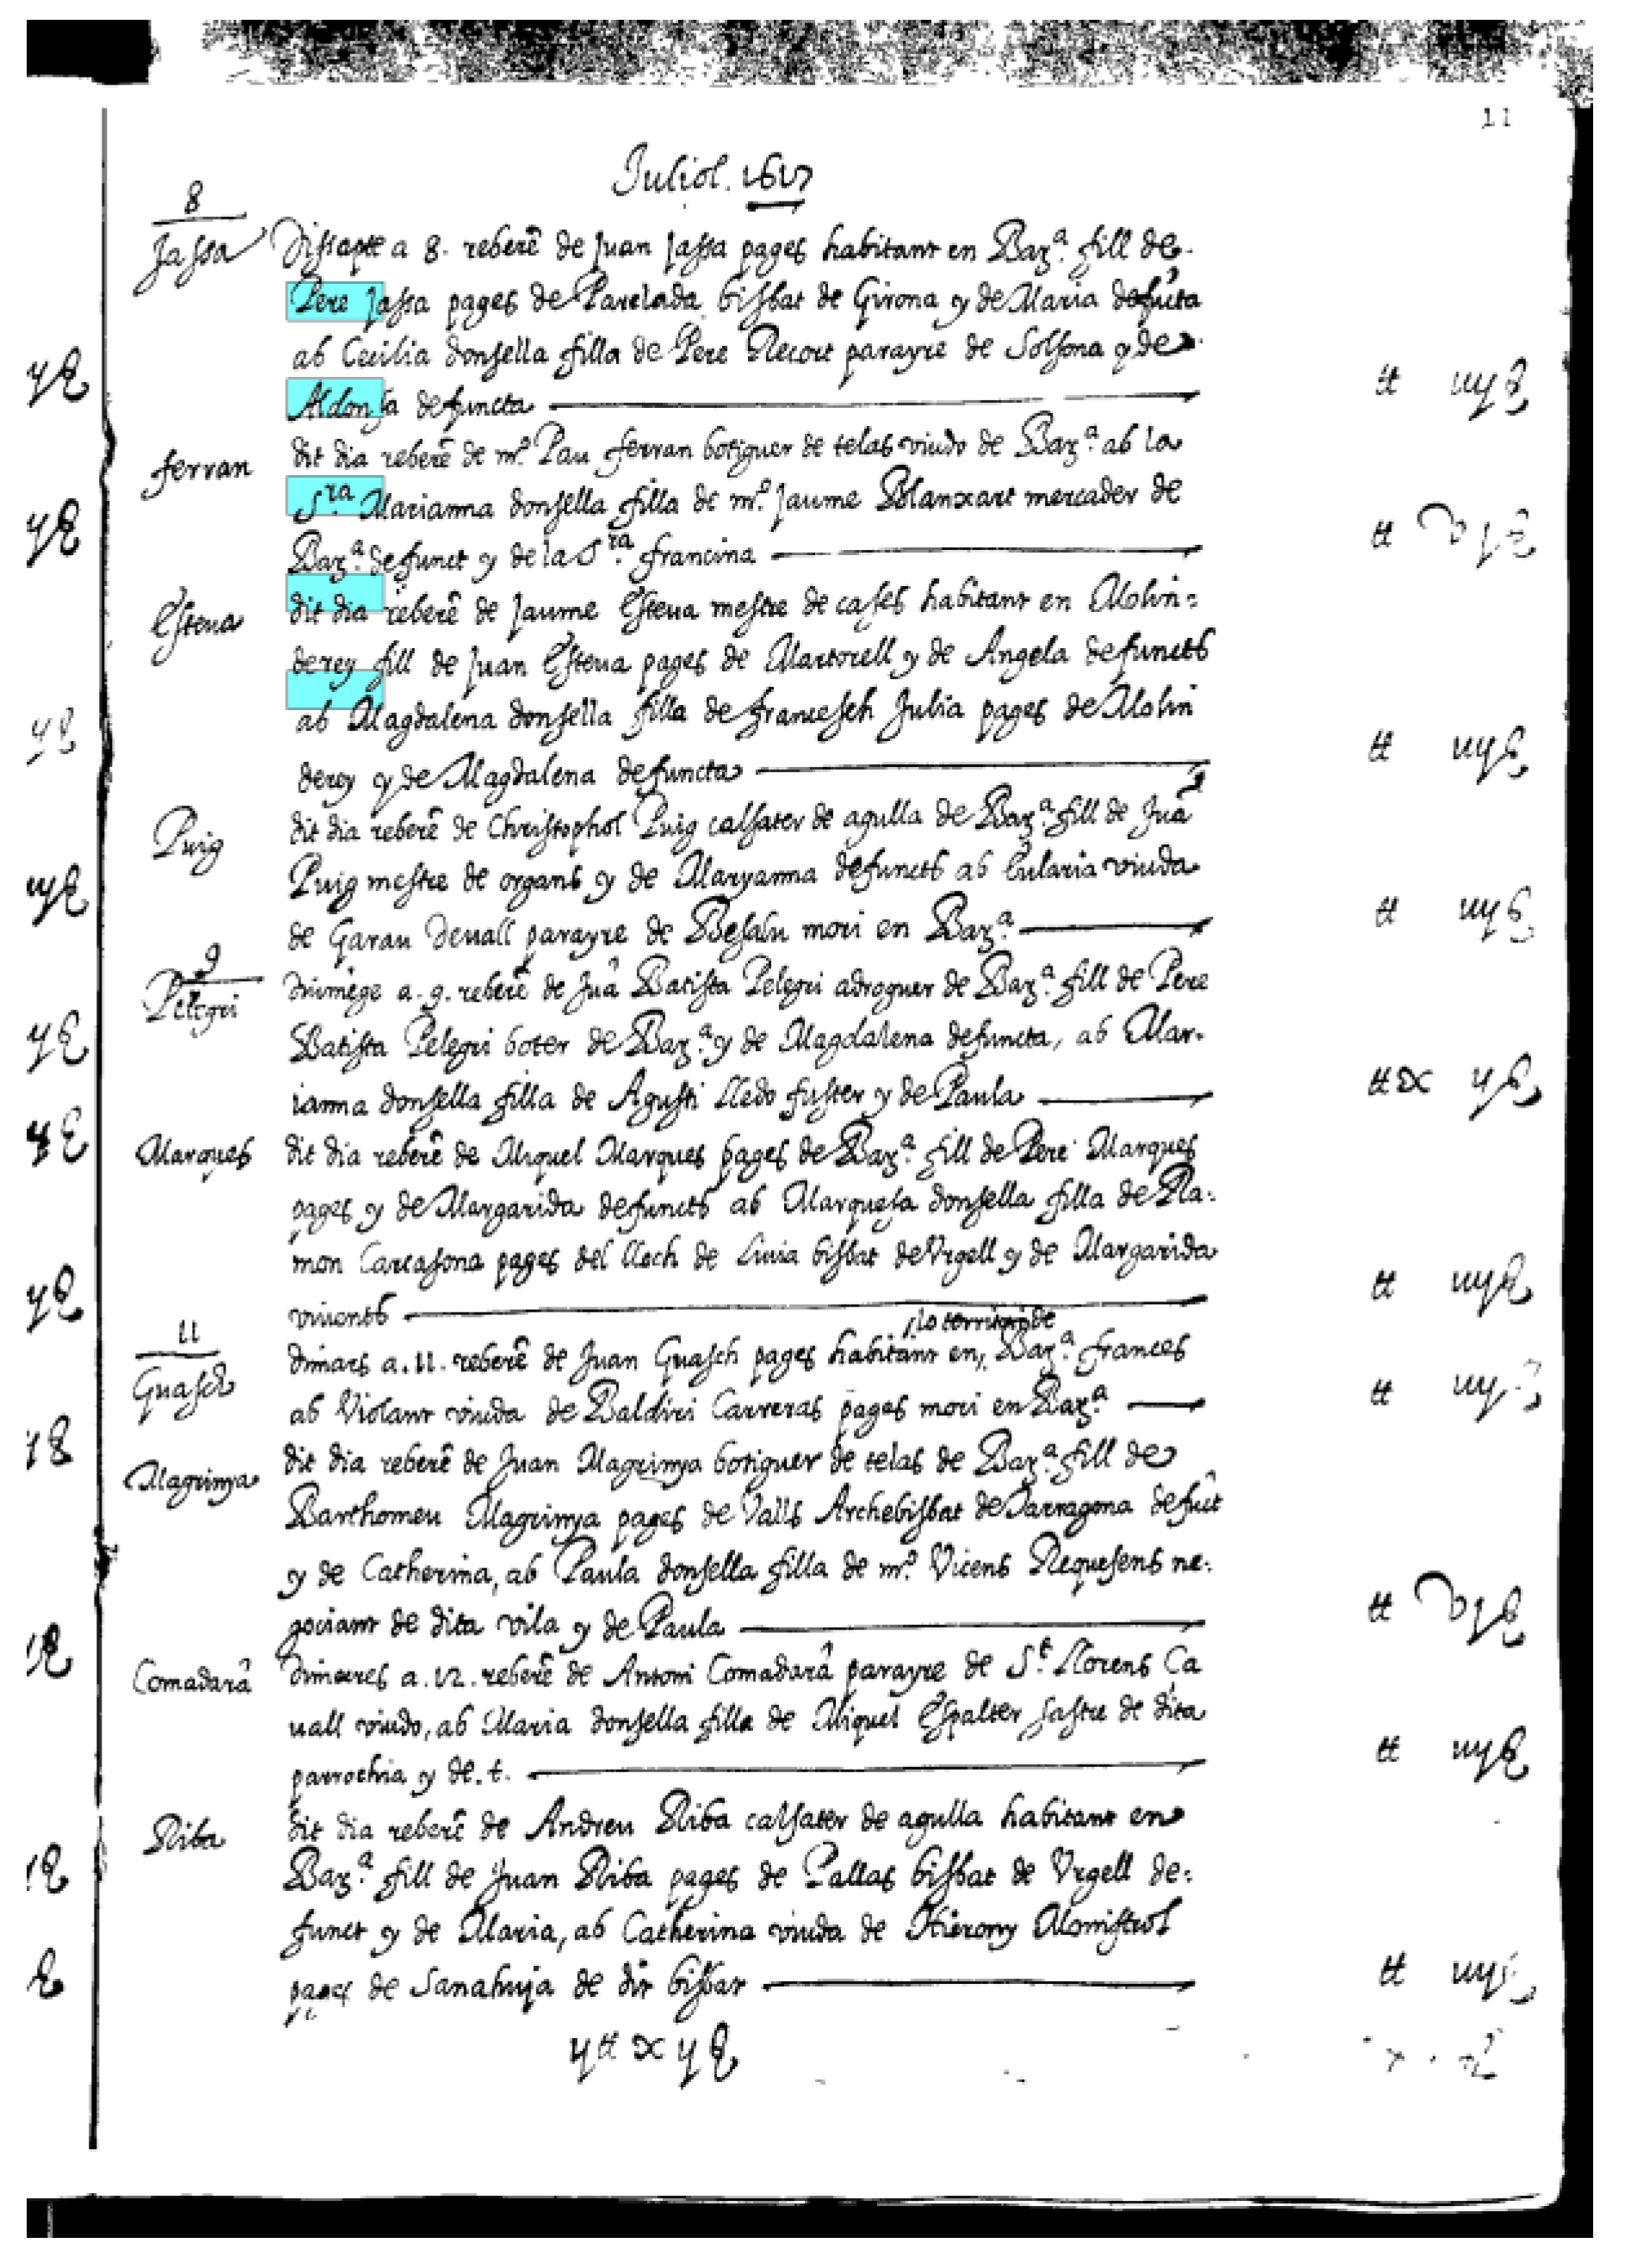 11
Juliol. 1617
8
Jassa
Dissapte a 8. reberē de Juan Jassa pages habitant en Barª. fill de
Pere Jassa pages de Parelada bisbat de Girona y de Maria defūta
ab Cecilia donsella filla de Pere Recort parayre de Solsona y de
Aldonsa defuncta
tt
ferran
dit dia reberē de mº. Pau ferran botiguer de telas viudo de Barª. ab la
Sʳᵃ Marianna donsella filla de mº. Jaume Blanxart mercader de
Barª. defunct y de la Sʳᵃ. francina
tt
Esteua
dit dia reberē de Jaume Esteua mestre de cases habitant en Molin=
derey fill de Juan Esteua pages de Martorell y de Angela defuncts
ab Magdalena donsella filla de francesch Julia pages de Molin
derey y de Magdalena defuncta
tt
Puig
dit dia reberē de Christophol Puig calsater de agulla de Barª. fill de Juā
Puig mestre de organs y de Maryanna defuncts ab Eularia viuda
de Garau Deuall parayre de Besalu mori en Barª.
tt
9
Pelegri
diumēge a .9. reberē de Juā Batista Pelegri adroguer de Barª. fill de Pere
Batista Pelegri boter de Barª. y de Magdalena defuncta, ab Mar-
ianna donsella filla de Agusti Lledo fuster y de Paula
tt
Marques
dit dia reberē de Miquel Marques pages de Barª. fill de Pere Marques
pages y de Margarida defuncts ab Marquesa donsella filla de Ra-
mon Carcasona pages del lloch de Liuia bisbat de Vrgell y de Margarida
viuents
tt
11
Guasch
lo territori de
dimars a .11. reberē de Juan Guasch pages habitant en Barª. frances
ab Violant viuda de Baldiri Carreras pages mori en Barª
tt
Magrinya
dit dia reberē de Juan Magrinya botiguer de telas de Barª. fill de
Barthomeu Magrinya pages de Valls Archebisbat de Tarragona defūt
y de Catherina, ab Paula donsella filla de mº. Vicens Requesens ne-
gociant de dita vila y de Paula
tt
Comadarā
dimecres a .12. reberē de Antoni Comadarā parayre de Sᵗ. Llorens Ça
uall viudo, ab Maria donsella filla de Miquel Espalter sastre de dita
parrochia y de .t.
tt
Riba
dit dia reberē de Andreu Riba calsater de agulla habitant en
Barª. fill de Juan Riba pages de Pallas bisbat de Vrgell de=
funct y de Maria, ab Catherina viuda de Hierony Monistrol
pages de Sanahuja de dit bisbat
tt